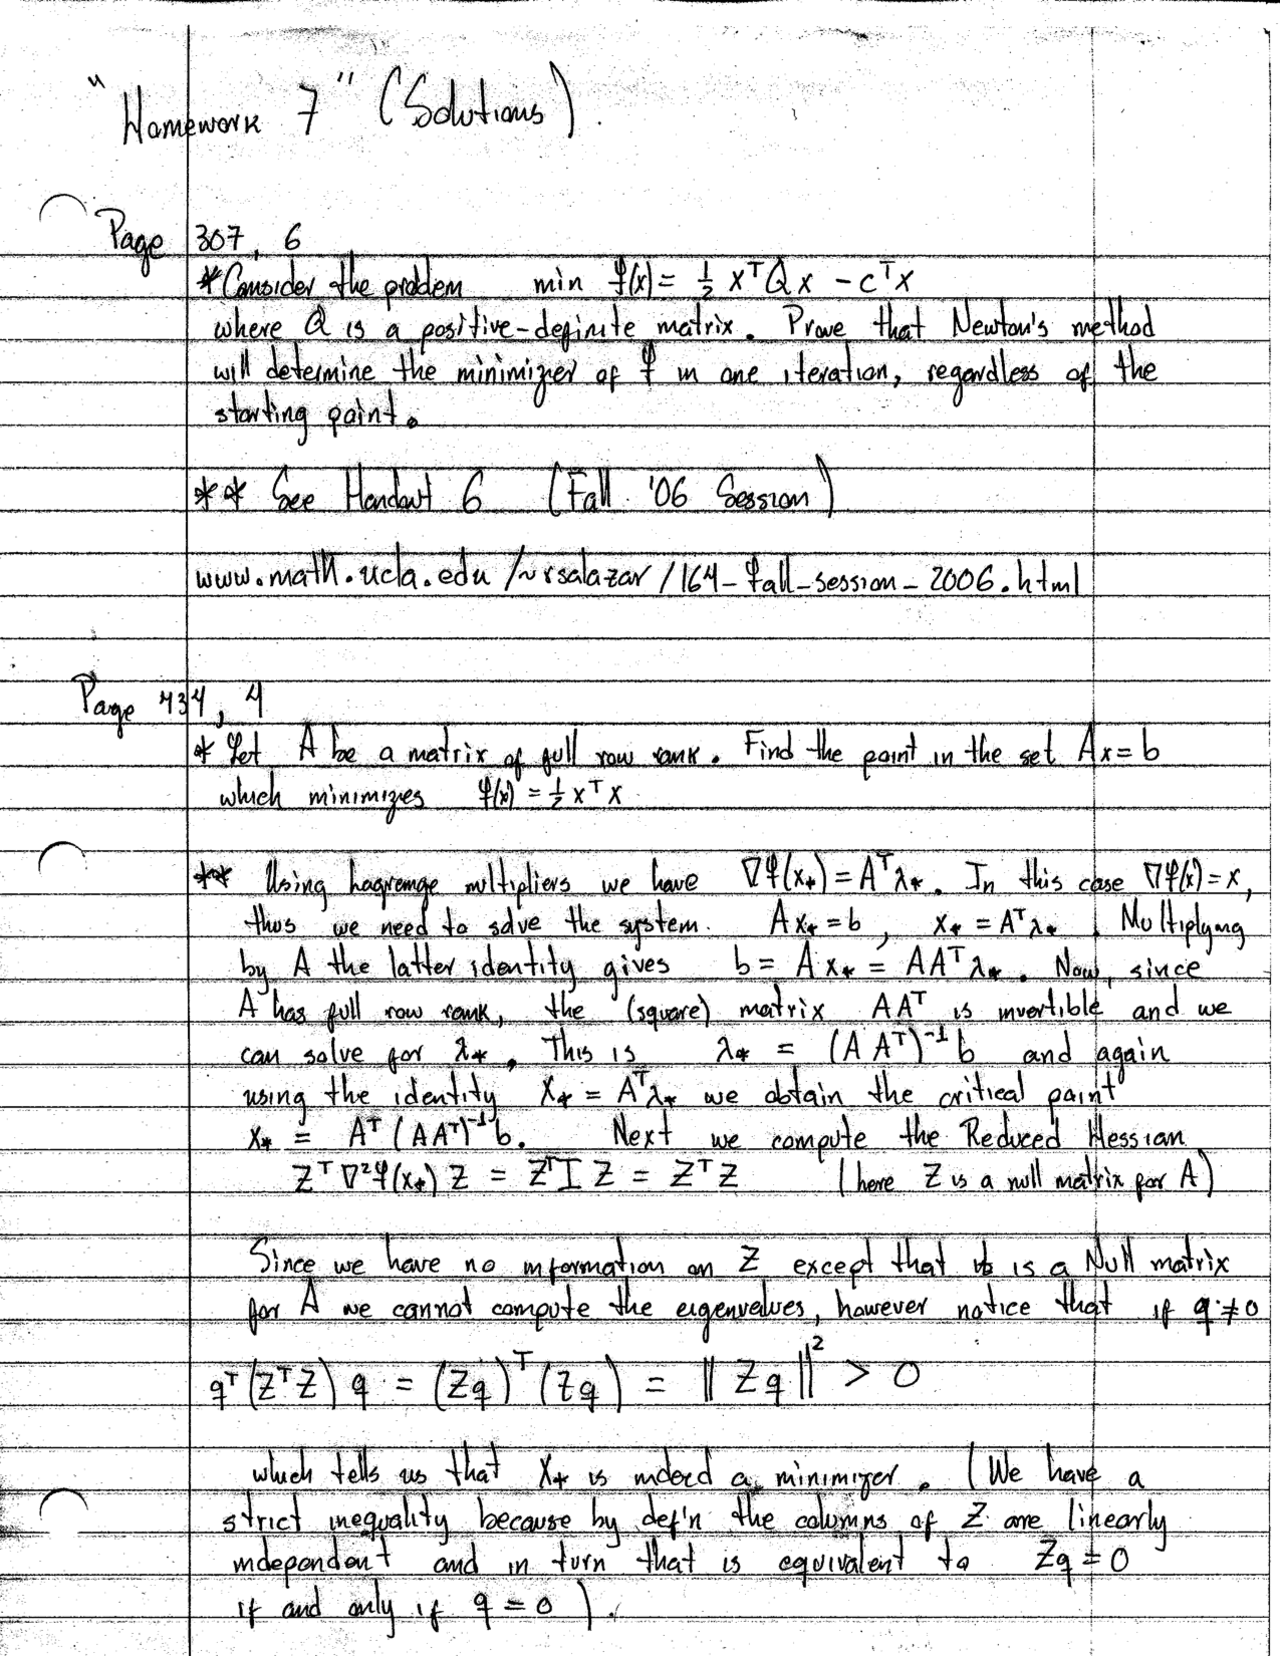 "Homework 7" (Solutions).
Page 307, 6
* Consider the problem min f(x) = ½ xᵀQx - cᵀx
where Q is a positive-definite matrix. Prove that Newton's method
will determine the minimizer of f in one iteration, regardless of the
starting point.
** See Handout 6 (Fall '06 Session)
www.math.ucla.edu/~rsalazar/164-fall-session-2006.html
Page 434, 4
* Let A be a matrix of full row rank. Find the point in the set Ax=b
which minimizes f(x) = ½ xᵀx
** Using Lagrange multipliers we have ∇f(x*) = Aᵀλ*. In this case ∇f(x) = x,
thus we need to solve the system. Ax* = b, x* = Aᵀλ*. Multiplying
by A the latter identity gives b = Ax* = AAᵀλ*. Now, since
A has full row rank, the (square) matrix AAᵀ is invertible and we
can solve for λ*. This is λ* = (AAᵀ)⁻¹b and again
using the identity x* = Aᵀλ* we obtain the critical point
x* = Aᵀ(AAᵀ)⁻¹b. Next we compute the Reduced Hessian
Zᵀ∇²f(x*)Z = ZᵀIZ = ZᵀZ (here Z is a null matrix for A)
Since we have no information on Z except that it is a Null matrix
for A we cannot compute the eigenvalues, however notice that if q ≠ 0
qᵀ(ZᵀZ)q = (Zq)ᵀ(Zq) = ||Zq||² > 0
which tells us that x* is indeed a minimizer. (We have a
strict inequality because by def'n the columns of Z are linearly
independent and in turn that is equivalent to Zq = 0
if and only if q = 0).